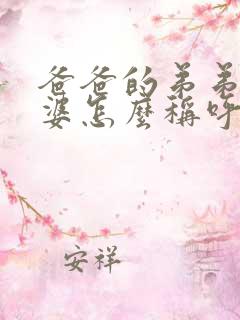 爸爸的弟弟
婆怎麼稱呼
安祥